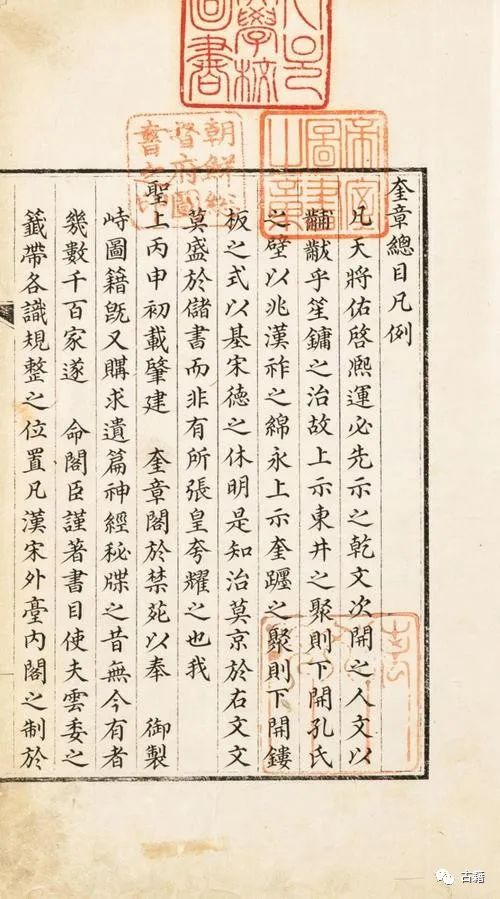 奎章總目凡例
凡天將佑啓熈運必先示之乾文次開之人文以
黼黻乎笙鏞之治故上示東井之聚則下開孔氏
之壁以兆漢祚之綿永上示奎躔之聚則下開鏤
板之式以基宋德之休明是知治莫京於右文文
莫盛於儲書而非有所張皇夸耀之也我
聖上丙申初載肇建 奎章閣於禁苑以奉 御製
峙圖籍旣又購求遺篇神經秘牒之昔無今有者
幾數千百家遂 命閣臣謹著書目使夫雲委之
籤帶各識規整之位置凡漢宋外臺內閣之制於
帝室
圖書
之章
朝鮮總
督府圖
書之印
學校
圖書
古籍